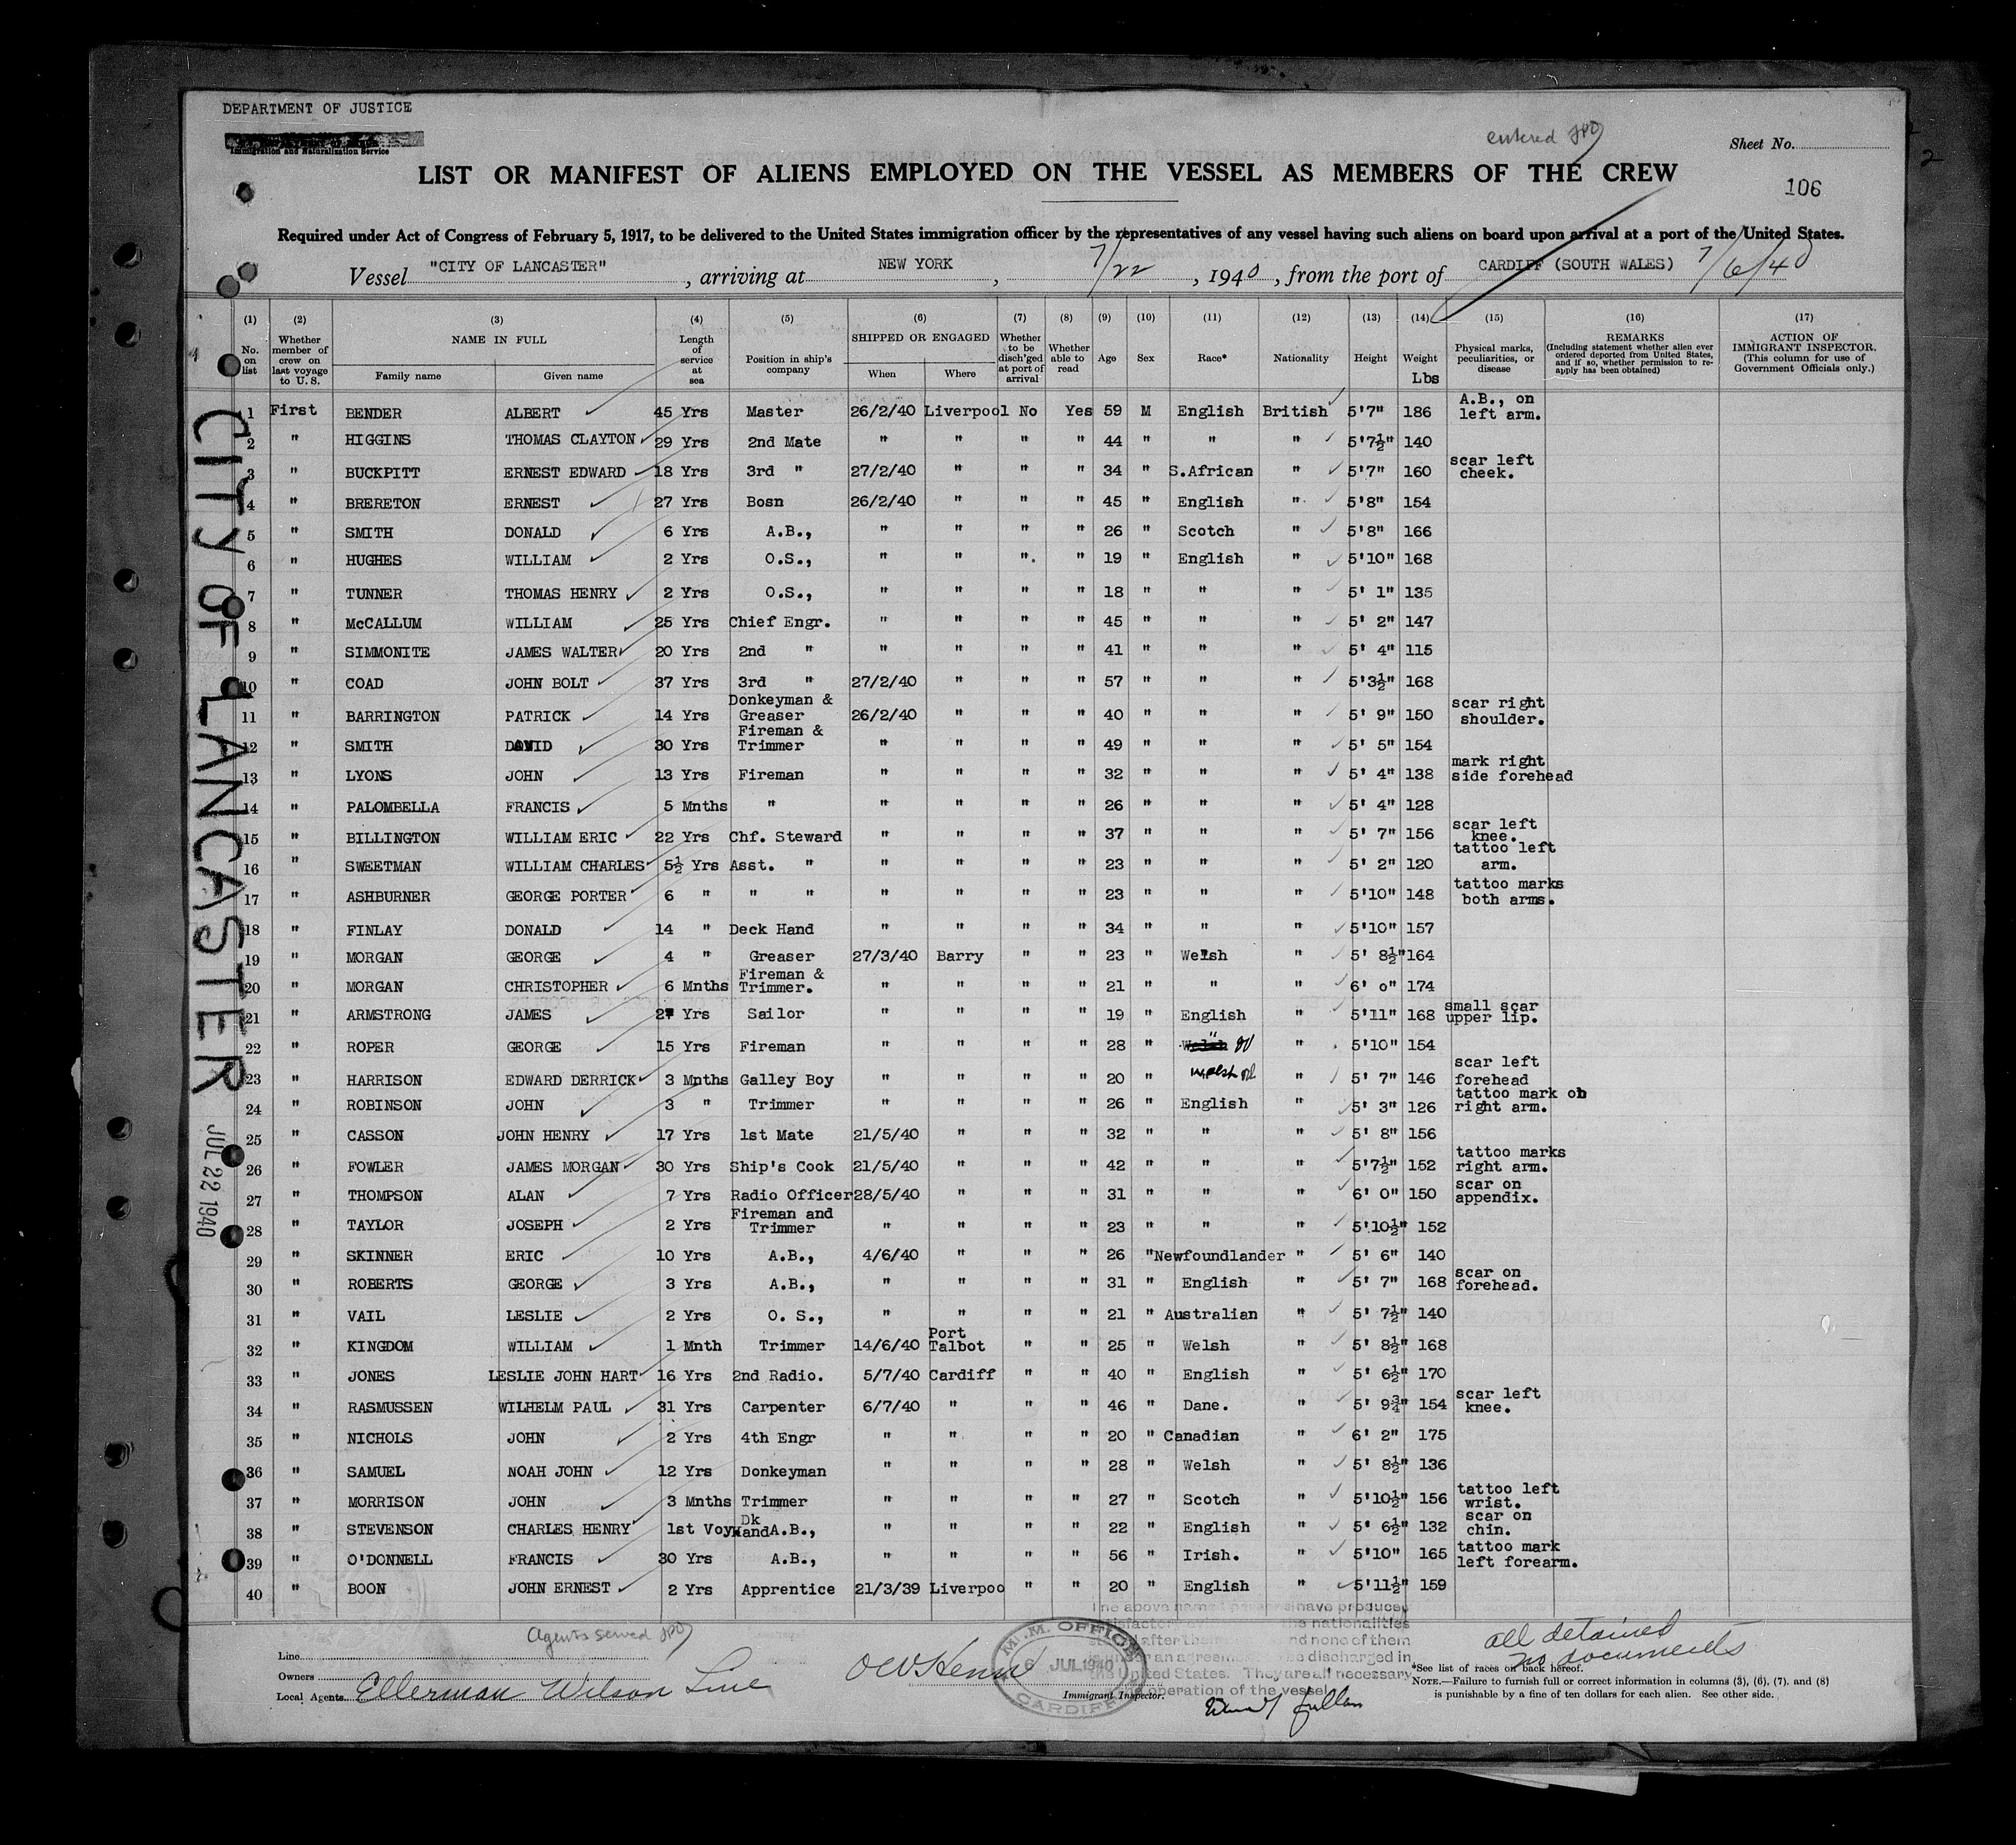 DEPARTMENT OF JUSTICE
Immigration and Naturalization Service
entered
Sheet No.
2
LIST OR MANIFEST OF ALIENS EMPLOYED ON THE VESSEL AS MEMBERS OF THE CREW
106
Required under Act of Congress of February 5, 1917, to be delivered to the United States immigration officer by the representatives of any vessel having such aliens on board upon arrival at a port of the United States.
Vessel "CITY OF LANCASTER", arriving at NEW YORK, 7/22, 1940, from the port of CARDIFF (SOUTH WALES) 7/6/40
(1) No. on list (2) Whether member of crew on last voyage to U.S. (3) NAME IN FULL Family name Given name (4) Length of service at sea (5) Position in ship's company (6) SHIPPED OR ENGAGED When Where (7) Whether to be disch'ged at port of arrival (8) Whether able to read (9) Age (10) Sex (11) Race* (12) Nationality (13) Height (14) Weight Lbs (15) Physical marks, peculiarities, or disease (16) REMARKS (Including statement whether alien ever ordered deported from United States, and if so, whether permission to re-apply has been obtained) (17) ACTION OF IMMIGRANT INSPECTOR. (This column for use of Government Officials only.)
1 First BENDER ALBERT 45 Yrs Master 26/2/40 Liverpool No Yes 59 M English British 5'7" 186 A.B., on left arm.
2 " HIGGINS THOMAS CLAYTON 29 Yrs 2nd Mate " " " " 44 " " " 5'7½" 140
3 " BUCKPITT ERNEST EDWARD 18 Yrs 3rd " 27/2/40 " " " 34 " S.African " 5'7" 160 scar left cheek.
4 " BRERETON ERNEST 27 Yrs Bosn 26/2/40 " " " 45 " English " 5'8" 154
5 " SMITH DONALD 6 Yrs A.B., " " " " 26 " Scotch " 5'8" 166
6 " HUGHES WILLIAM 2 Yrs O.S., " " " " 19 " English " 5'10" 168
7 " TUNNER THOMAS HENRY 2 Yrs O.S., " " " " 18 " " " 5' 1" 135
8 " McCALLUM WILLIAM 25 Yrs Chief Engr. " " " " 45 " " " 5' 2" 147
9 " SIMMONITE JAMES WALTER 20 Yrs 2nd " " " " " 41 " " " 5' 4" 115
10 " COAD JOHN BOLT 37 Yrs 3rd " 27/2/40 " " " 57 " " " 5'3½" 168
11 " BARRINGTON PATRICK 14 Yrs Donkeyman & Greaser 26/2/40 " " " 40 " " " 5' 9" 150 scar right shoulder.
12 " SMITH DAVID 30 Yrs Fireman & Trimmer " " " " 49 " " " 5' 5" 154
13 " LYONS JOHN 13 Yrs Fireman " " " " 32 " " " 5' 4" 138 mark right side forehead
14 " PALOMBELLA FRANCIS 5 Mnths " " " " " 26 " " " 5' 4" 128
15 " BILLINGTON WILLIAM ERIC 22 Yrs Chf. Steward " " " " 37 " " " 5' 7" 156 scar left knee.
16 " SWEETMAN WILLIAM CHARLES 5½ Yrs Asst. " " " " " 23 " " " 5' 2" 120 tattoo left arm.
17 " ASHBURNER GEORGE PORTER 6 " " " " " " " 23 " " " 5'10" 148 tattoo marks both arms.
18 " FINLAY DONALD 14 " Deck Hand " " " " 34 " " " 5'10" 157
19 " MORGAN GEORGE 4 " Greaser 27/3/40 Barry " " 23 " Welsh " 5' 8½" 164
20 " MORGAN CHRISTOPHER 6 Mnths Fireman & Trimmer. " " " " 21 " " " 6' 0" 174
21 " ARMSTRONG JAMES 2 Yrs Sailor " " " " 19 " English " 5'11" 168 small scar upper lip.
22 " ROPER GEORGE 15 Yrs Fireman " " " " 28 " " " 5'10" 154
23 " HARRISON EDWARD DERRICK 3 Mnths Galley Boy " " " " 20 " Welsh " 5' 7" 146 scar left forehead
24 " ROBINSON JOHN 3 " Trimmer " " " " 26 " English " 5' 3" 126 tattoo mark on right arm.
25 " CASSON JOHN HENRY 17 Yrs 1st Mate 21/5/40 " " " 32 " " " 5' 8" 156
26 " FOWLER JAMES MORGAN 30 Yrs Ship's Cook 21/5/40 " " " 42 " " " 5'7½" 152 tattoo marks right arm.
27 " THOMPSON ALAN 7 Yrs Radio Officer 28/5/40 " " " 31 " " " 6' 0" 150 scar on appendix.
28 " TAYLOR JOSEPH 2 Yrs Fireman and Trimmer " " " " 23 " " " 5'10½" 152
29 " SKINNER ERIC 10 Yrs A.B., 4/6/40 " " " 26 " Newfoundlander " 5' 6" 140
30 " ROBERTS GEORGE 3 Yrs A.B., " " " " 31 " English " 5' 7" 168 scar on forehead.
31 " VAIL LESLIE 2 Yrs O. S., " " " " 21 " Australian " 5' 7½" 140
32 " KINGDOM WILLIAM 1 Mnth Trimmer 14/6/40 Port Talbot " " 25 " Welsh " 5' 8½" 168
33 " JONES LESLIE JOHN HART 16 Yrs 2nd Radio. 5/7/40 Cardiff " " 40 " English " 5' 6½" 170
34 " RASMUSSEN WILHELM PAUL 31 Yrs Carpenter 6/7/40 " " " 46 " Dane. " 5' 9¾" 154 scar left knee.
35 " NICHOLS JOHN 2 Yrs 4th Engr " " " " 20 " Canadian " 6' 2" 175
36 " SAMUEL NOAH JOHN 12 Yrs Donkeyman " " " " 28 " Welsh " 5' 8½" 136
37 " MORRISON JOHN 3 Mnths Trimmer " " " " 27 " Scotch " 5'10½" 156 tattoo left wrist.
38 " STEVENSON CHARLES HENRY 1st Voy Dk Hand A.B., " " " " 22 " English " 5' 6½" 132 scar on chin.
39 " O'DONNELL FRANCIS 30 Yrs A.B., " " " " 56 " Irish. " 5'10" 165 tattoo mark left forearm.
40 " BOON JOHN ERNEST 2 Yrs Apprentice 21/3/39 Liverpoo " " 20 " English " 5'11½" 159
CITY OF LANCASTER
JUL 22 1940
Agents served
Line
Owners
Local Agents Ellerman Wilson Line
Immigrant Inspector.
M.M. OFFICE
6 JUL 1940
CARDIFF
The above named have produced
the nationalities
after and none of them
an agreement be discharged in
United States. They are all necessary
operation of the vessel
all detained
no documents
*See list of races on back hereof.
NOTE.—Failure to furnish full or correct information in columns (3), (6), (7), and (8)
is punishable by a fine of ten dollars for each alien. See other side.